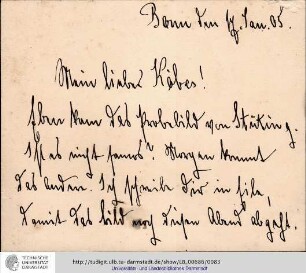 Bonn den 17. Jan. 08.
Mein liebes Köbes!
Eben kam das Probebild von Stüting.
Ist es nicht famos? Morgen kommt
das andere. Ich schreibe dir in Eile,
damit das Bild noch diesen Abend abgeht.
TECHNISCHE
UNIVERSITÄT
DARMSTADT
http://tudigit.ulb.tu-darmstadt.de/show/LB_00888/0983
Universitäts- und Landesbibliothek Darmstadt